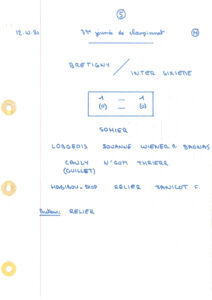 5
12.10.80 3ème journée de championnat
BRETIGNY
INTER SIXIEME
1 - 1
(0) - (0)
SOHIER
LOBGEOIS SOUANNE WIENER D. BAGNAS
CAULY N'GOM THRIERR
(GUILLET)
RELIER JANICOT F.
Buteur: RELIER